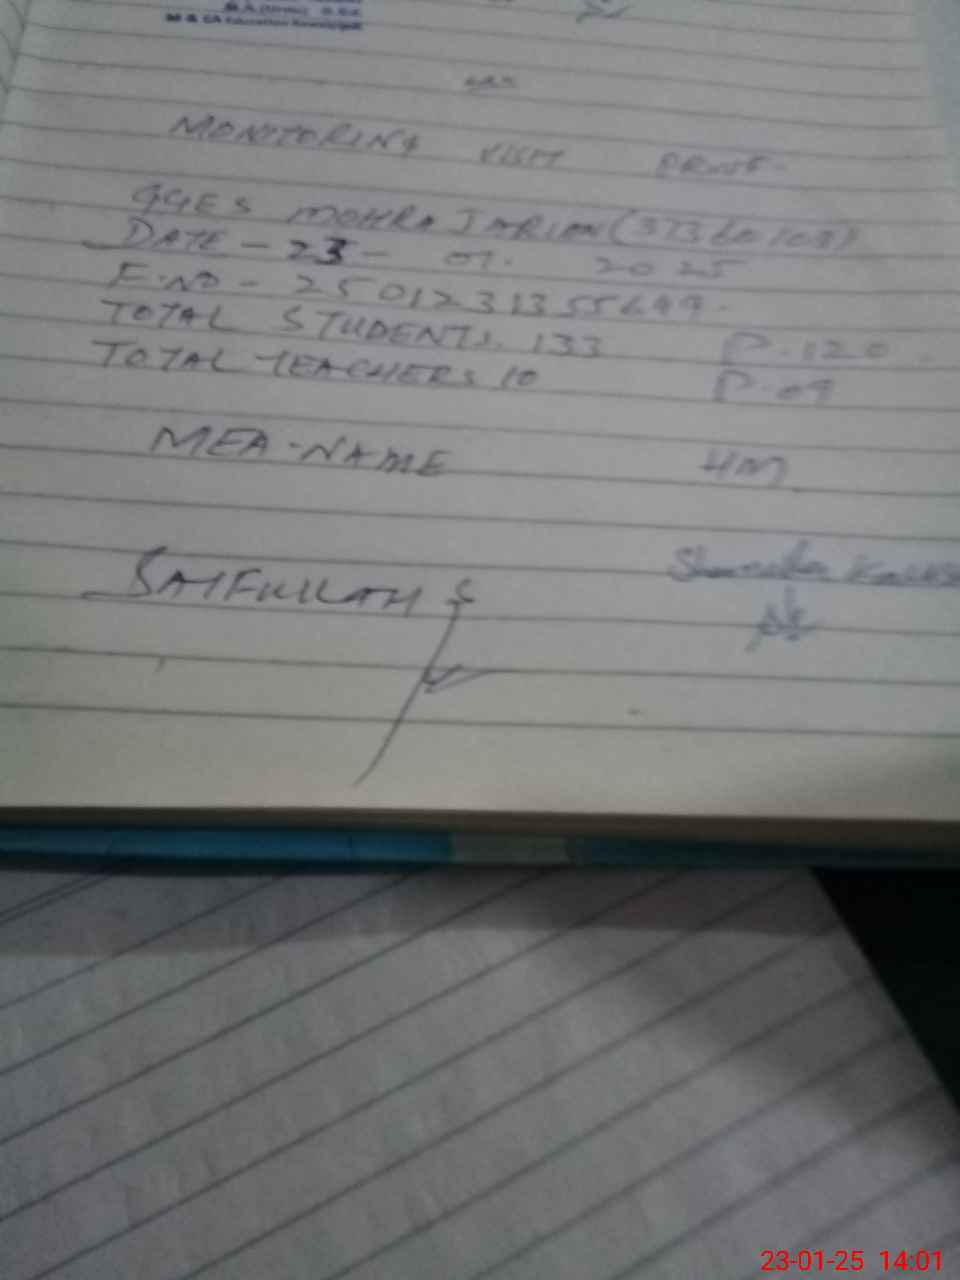 MONITORING VISIT PROOF-
GGES MOHRA JARIAN (37360108)
DATE - 23 - 01. 2025
E.NO - 2501231355699.
TOTAL STUDENTS. 133 P.120
TOTAL TEACHERS 10 P.09
MEA-NAME HM
SAIFULLAH
23-01-25 14:01